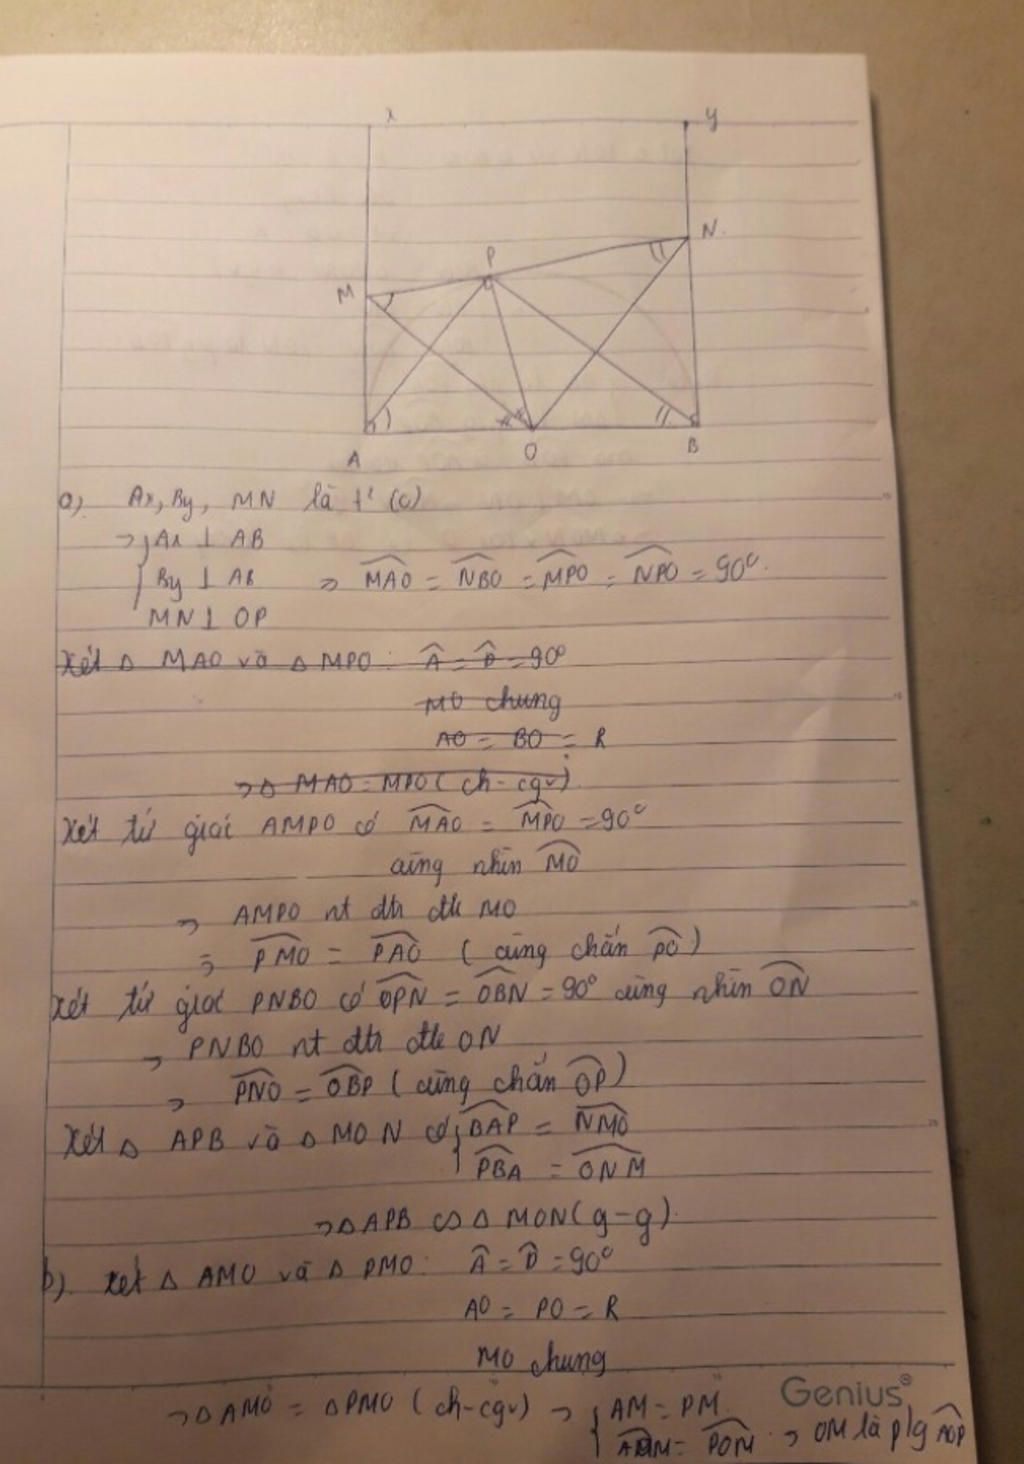 x y
N
P
M
A O B
a) Ax, By, MN là t² (O)
→ { Ax ⊥ AB
By ⊥ AB ⇒ \widehat{MAO} = \widehat{NBO} = \widehat{MPO} = \widehat{NPO} = 90°.
MN ⊥ OP
Xét Δ MAO và Δ MPO: \widehat{A} = \widehat{P} = 90°
MO chung
AO = BO = R
→ Δ MAO = MPO (ch-cgv)
Xét tứ giác AMPO có \widehat{MAO} = \widehat{MPO} = 90°
cùng nhìn \widehat{MO}
→ AMPO nt đtr đk MO
⇒ \widehat{PMO} = \widehat{PAO} (cùng chắn \widehat{PO})
Xét tứ giác PNBO có \widehat{OPN} = \widehat{OBN} = 90° cùng nhìn \widehat{ON}
→ PNBO nt đtr đk ON
→ \widehat{PNO} = \widehat{OBP} (cùng chắn \widehat{OP})
Xét Δ APB và Δ MON có { \widehat{BAP} = \widehat{NMO}
\widehat{PBA} = \widehat{ONM}
→ Δ APB ∽ Δ MON (g-g).
b) Xét Δ AMO và Δ PMO: \widehat{A} = \widehat{P} = 90°
AO = PO = R
MO chung
→ Δ AMO = Δ PMO (ch-cgv) → { AM = PM
= \widehat{POM} → OM là p/g \widehat{AOP}
Genius®